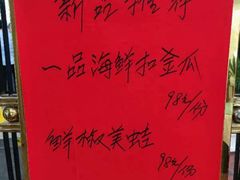 新品推荐
一品海鲜扣金瓜
98元/份
鲜椒美蛙
98元/份